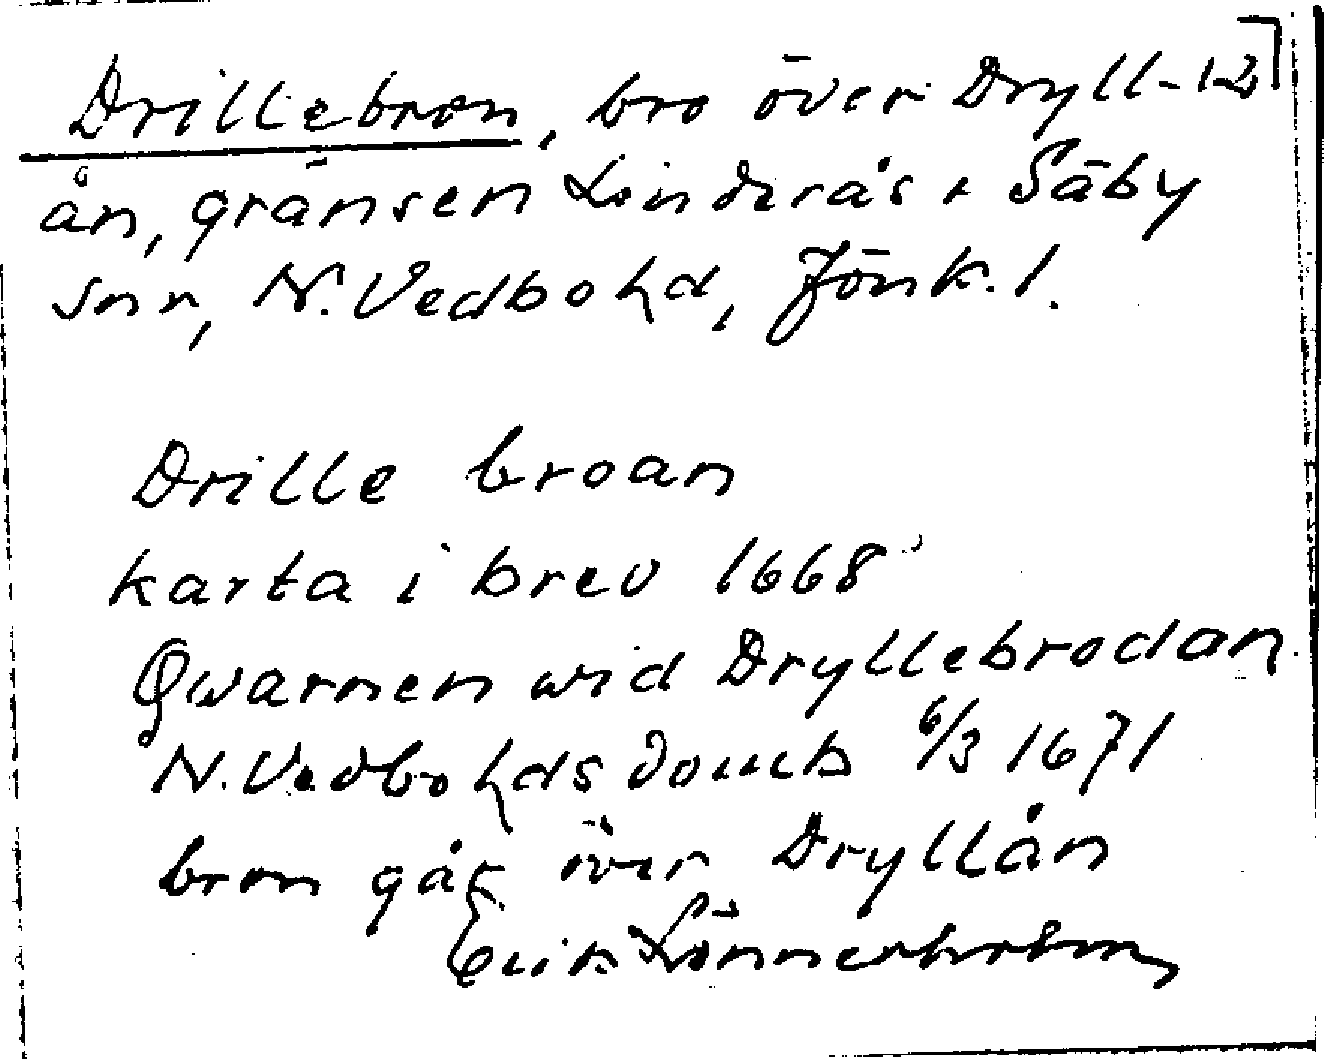 Drillebron, bro över Dryll-
ån, gränsen Linderås + Säby
snr, N. Vedbo hd, Jönk. l.
Drille broan
karta i brev 1668
Qwarnen wid Dryllebrodan
N. Vedbo hds domb 6/3 1671
bron går över Dryllån
Erik Lönnerholm